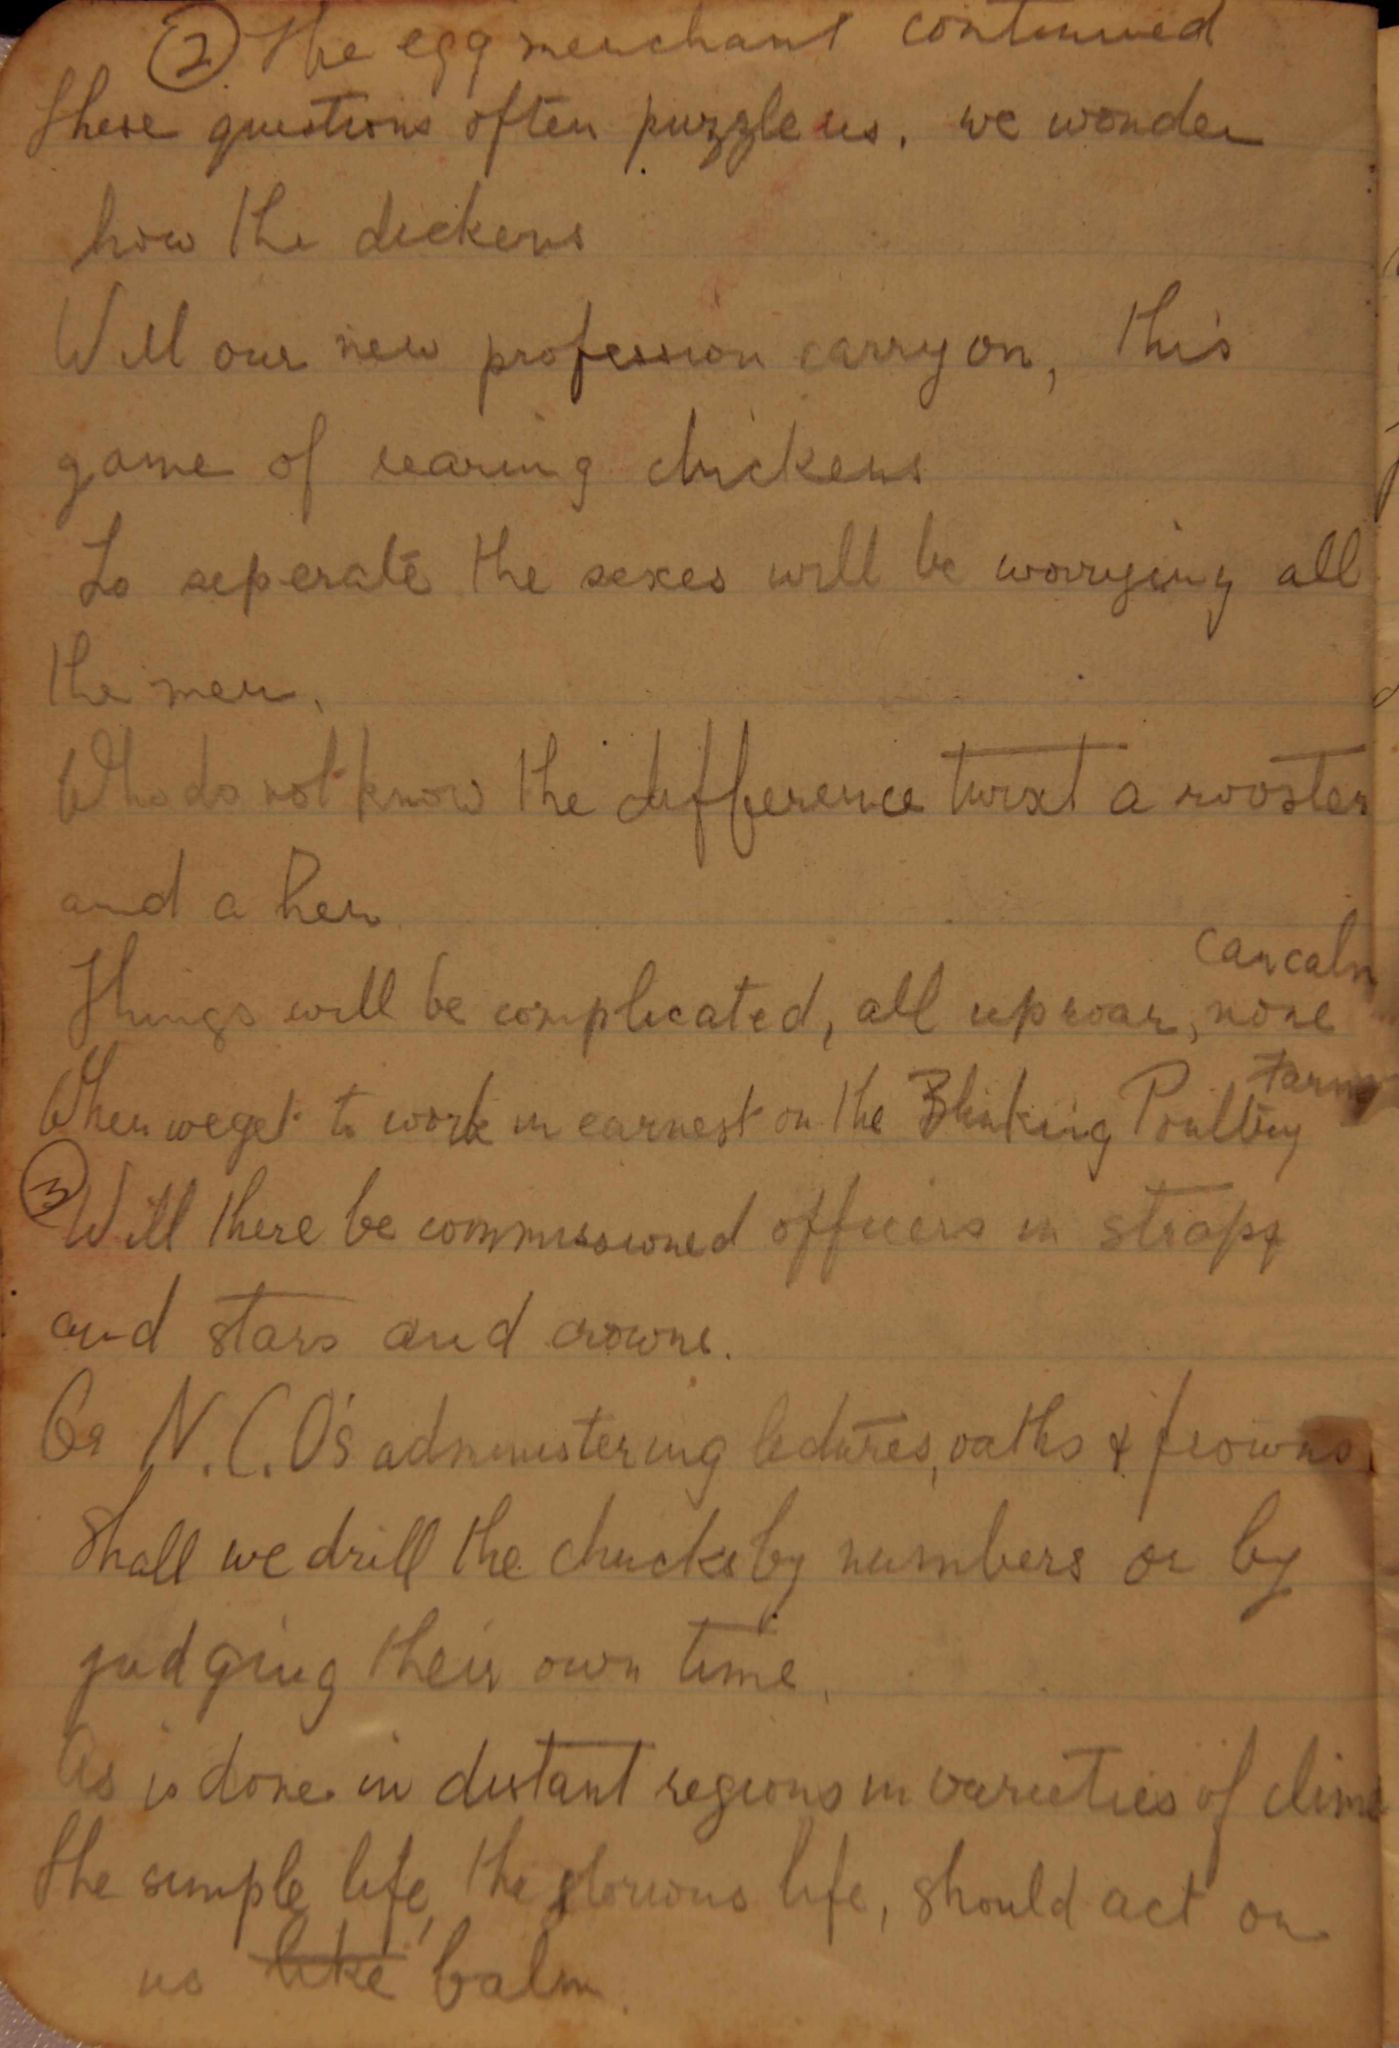 ② The egg merchant continued
These questions often puzzle us. we wonder
how the dickens
Will our new profession carry on, this
game of rearing chickens
To seperate the sexes will be worrying all
the men.
Who do not know the difference twixt a rooster
and a hen
Things will be complicated, all uproar, none
can calm
When we get to work in earnest on the Blinking Poultry
Farm
③ Will there be commissioned officers in straps
and stars and crowns.
Or N.C.O's administering lectures, oaths & frowns
Shall we drill the chucks by numbers or by
judging their own time.
As is done in distant regions in varieties of clime
The simple life, the glorious life, should act on
us like balm.